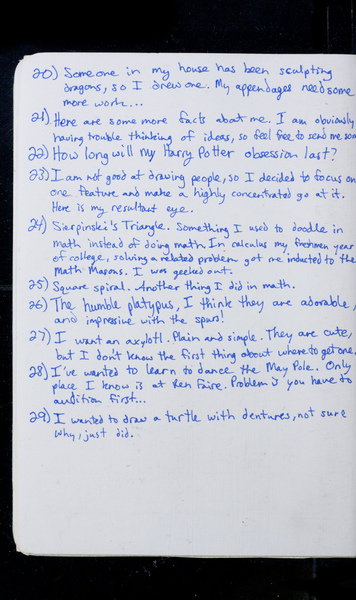 20) Someone in my house has been sculpting
dragons, so I drew one. My appendages need some
more work...
21) Here are some more facts about me. I am obviously
having trouble thinking of ideas, so feel free to send me some
22) How long will my Harry Potter obsession last?
23) I am not good at drawing people, so I decided to focus on
one feature and make a highly concentrated go at it.
Here is my resultant eye.
24) Sierpinski's Triangle. Something I used to doodle in
math instead of doing math. In calculus my freshmen year
of college, solving a related problem got me inducted to the
Math Masons. I was geeked out.
25) Square spiral. Another thing I did in math.
26) The humble platypus, I think they are adorable,
and impressive with the spurs!
27) I want an axylotl. Plain and simple. They are cute,
but I don't know the first thing about where to get one.
28) I've wanted to learn to dance the May Pole. Only
place I know is at Ren Faire. Problem is you have to
audition first...
29) I wanted to draw a turtle with dentures, not sure
why, just did.